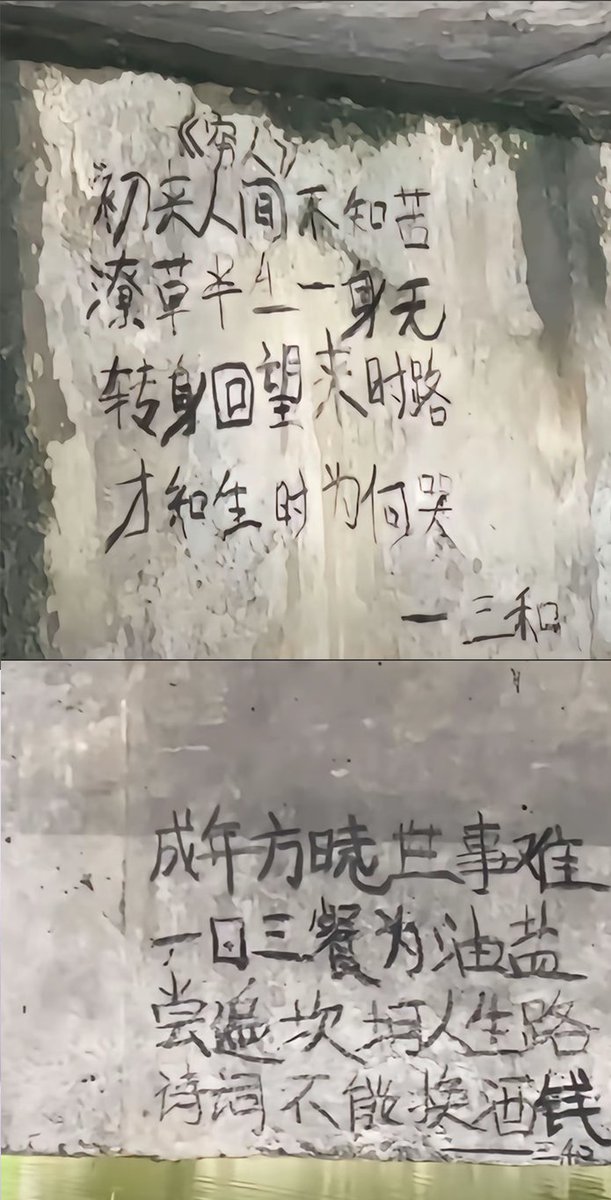 《穷人》
初来人间不知苦
潦草半生一身无
转身回望来时路
才知生时为何哭
一三和
成年方晓世事难
一日三餐为油盐
尝遍坎坷人生路
诗词不能换酒钱
——三和